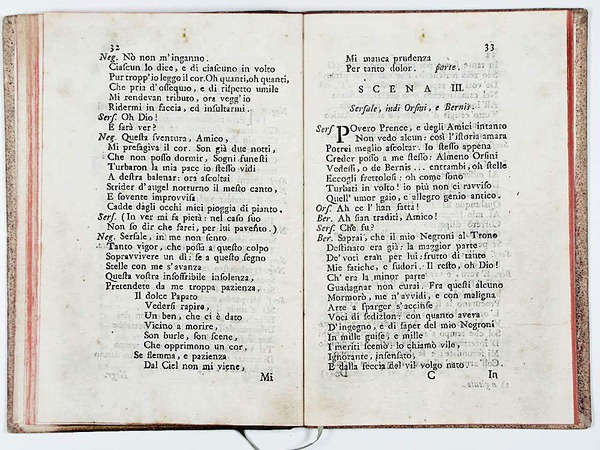 32
Neg. Nò non m'inganno.
Ciascun lo dice, e di ciascuno in volto
Pur tropp'io leggo il cor. Oh quanti, oh quanti,
Che pria d'ossequo, e di rispetto umile
Mi rendevan tributo, ora vegg'io
Ridermi in faccia, ed insultarmi.
Serf. Oh Dio!
E farà ver?
Neg. Questa sventura, Amico,
Mi presagiva il cor. Son già due notti,
Che non posso dormir, Sogni funesti
Turbaron la mia pace; io stesso vidi
A destra balenar: ora ascoltai
Strider d'augel notturno il mesto canto,
E sovente improvvisa
Cadde dagli occhi miei pioggia di pianto.
Serf. (In ver mi fa pietà: nel caso suo
Non so dir che farei, per lui pavento.)
Neg. Sersale, in me non sento
Tanto vigor, che possa a questo colpo
Sopravvivere un dì: se a questo segno
Stelle con me s'avanza
Questa vostra insoffribile insolenza,
Pretendete da me troppa pazienza.
Il dolce Papato
Vedersi rapire,
Un ben, che ci è dato
Vicino a morire,
Son burle, son scene,
Che opprimono un cor.
Se flemma, e pazienza
Dal Ciel non mi viene,
Mi
33
Mi manca prudenza
Per tanto dolor. parte.
SCENA III.
Sersale, indi Orsini, e Bernis.
Serf POvero Prence, e degli Amici intanto
Non vedo alcun: così l'istoria amara
Potrei meglio ascoltar. Io stesso appena
Creder posso a me stesso: Almeno Orsini
Vedessi, o de Bernis ... entrambi, oh stelle
Eccogli frettolosi: oh come sono
Turbati in volto! io più non ci ravviso
Quell'umor gaio, e allegro genio antico.
Orf. Ah ce l'han fatta!
Ber. Ah sian traditi, Amico!
Serf. Che fu?
Ber. Saprai, che il mio Negroni al Trono
Destinato era già: la maggior parte
De' voci eran per lui: frutto di tante
Mie fatiche, e sudori. Il resto, oh Dio!
Ch'era la minor parte
Guadagnar non curai. Fra questi alcuno
Mormorò, me n'avvidi, e con maligna
Arte a sparger s'accinse
Voci di sedizion: con quanto aveva
D'ingegno, e di saper del mio Negroni
In mille guise, e mille
I meriti scemò: lo chiamò vile,
Ignorante, insensato,
E dalla feccia del vil volgo nato.
C In